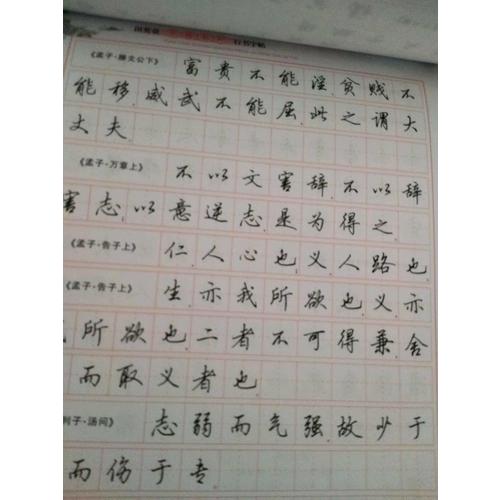 行书字帖
《孟子·滕文公下》 富贵不能淫,贫贱不
能移,威武不能屈,此之谓大
丈夫.
《孟子·万章上》 不以文害辞,不以辞
害志,以意逆志,是为得之.
《孟子·告子上》 仁,人心也,义,人路也
《孟子·告子上》 生亦我所欲也,义亦
所欲也,二者不可得兼,舍
而取义者也
列子·汤问》 志弱而气强,故少于
而伤于专